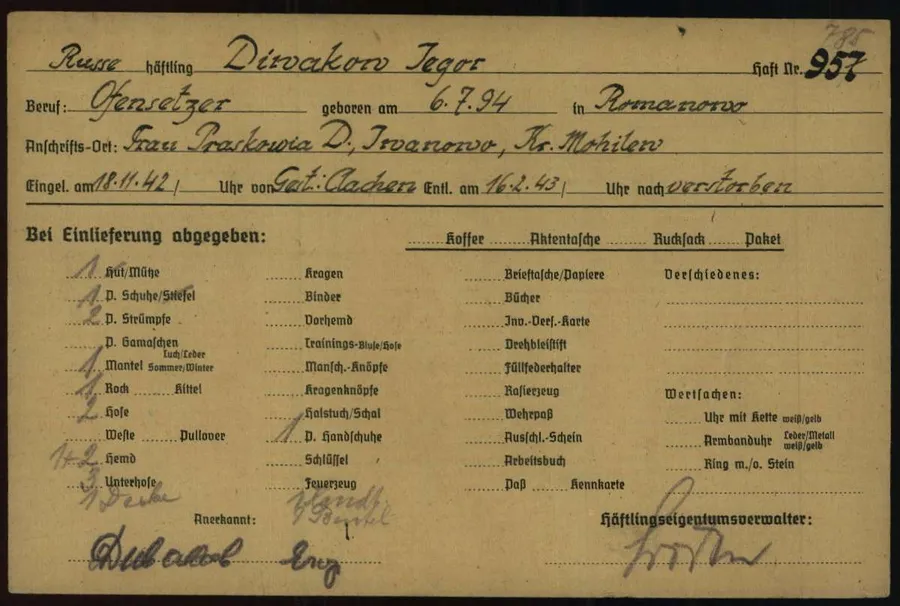 785
Russe häftling Diwakow Jegor Haft Nr. 957
Beruf: Ofensetzer geboren am 6.7.94 in Romanowo
Anschrifts-Ort: Frau Praskowia D., Iwanowo, Kr. Mohilew
Eingel. am 18.11.42 Uhr von Gest: Aachen Entl. am 16.2.43 Uhr nach verstorben
Bei Einlieferung abgegeben: Koffer Aktentasche Rucksack Paket
1 Hut/Mütze Kragen Brieftasche/Papiere Verschiedenes:
1 P. Schuhe/Stiefel Binder Bücher
2 P. Strümpfe Vorhemd Inv.-Vers.-Karte
P. Gamaschen Trainings-Bluse/Hose Drehbleistift
1 Mantel Tuch/Leder Sommer/Winter Mansch.-Knöpfe Füllfederhalter
1 Rock Kittel Kragenknöpfe Rasierzeug Wertsachen:
2 Hose Halstuch/Schal Wehrpaß Uhr mit Kette weiß/gelb
Weste Pullover 1 P. Handschuhe Auschl.-Schein Armbanduhr Leder/Metall weiß/gelb
2 Hemd Schlüssel Arbeitsbuch Ring m./o. Stein
3 Unterhose Feuerzeug Paß Kennkarte
1
Anerkannt: Häftlingseigentumsverwalter: